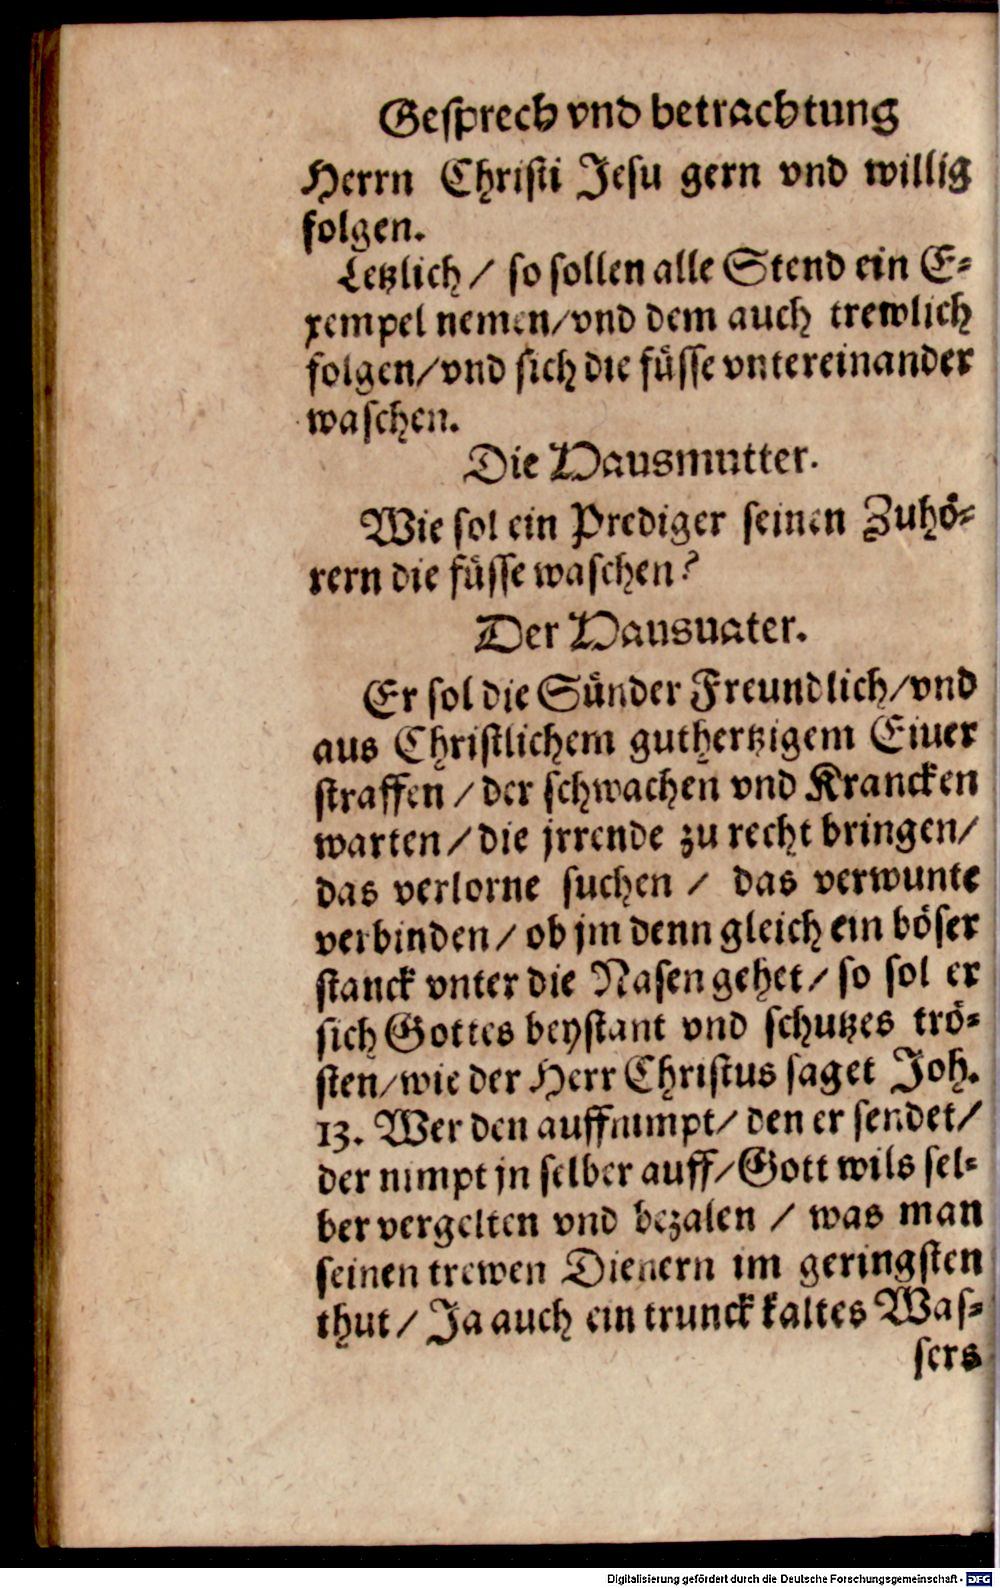 Gesprech vnd betrachtung
Herrn Christi Jesu gern vnd willig
folgen.
Letzlich / so sollen alle Stend ein E-
xempel nemen/vnd dem auch trewlich
folgen/vnd sich die füsse vntereinander
waschen.
Die Hausmutter.
Wie sol ein Prediger seinen Zuhö-
rern die füsse waschen?
Der Hausuater.
Er sol die Sünder Freundlich/vnd
aus Christlichem guthertzigem Eiuer
straffen / der schwachen vnd Krancken
warten / die jrrende zu recht bringen/
das verlorne suchen / das verwunte
verbinden / ob jm denn gleich ein böser
stanck vnter die Nasen gehet / so sol er
sich Gottes beystant vnd schutzes trö-
sten/wie der Herr Christus saget Joh.
13. Wer den auffnimpt/ den er sendet/
der nimpt jn selber auff/Gott wils sel-
ber vergelten vnd bezalen / was man
seinen trewen Dienern im geringsten
thut / Ja auch ein trunck kaltes Was-
sers
Digitalisierung gefördert durch die Deutsche Forschungsgemeinschaft - DFG